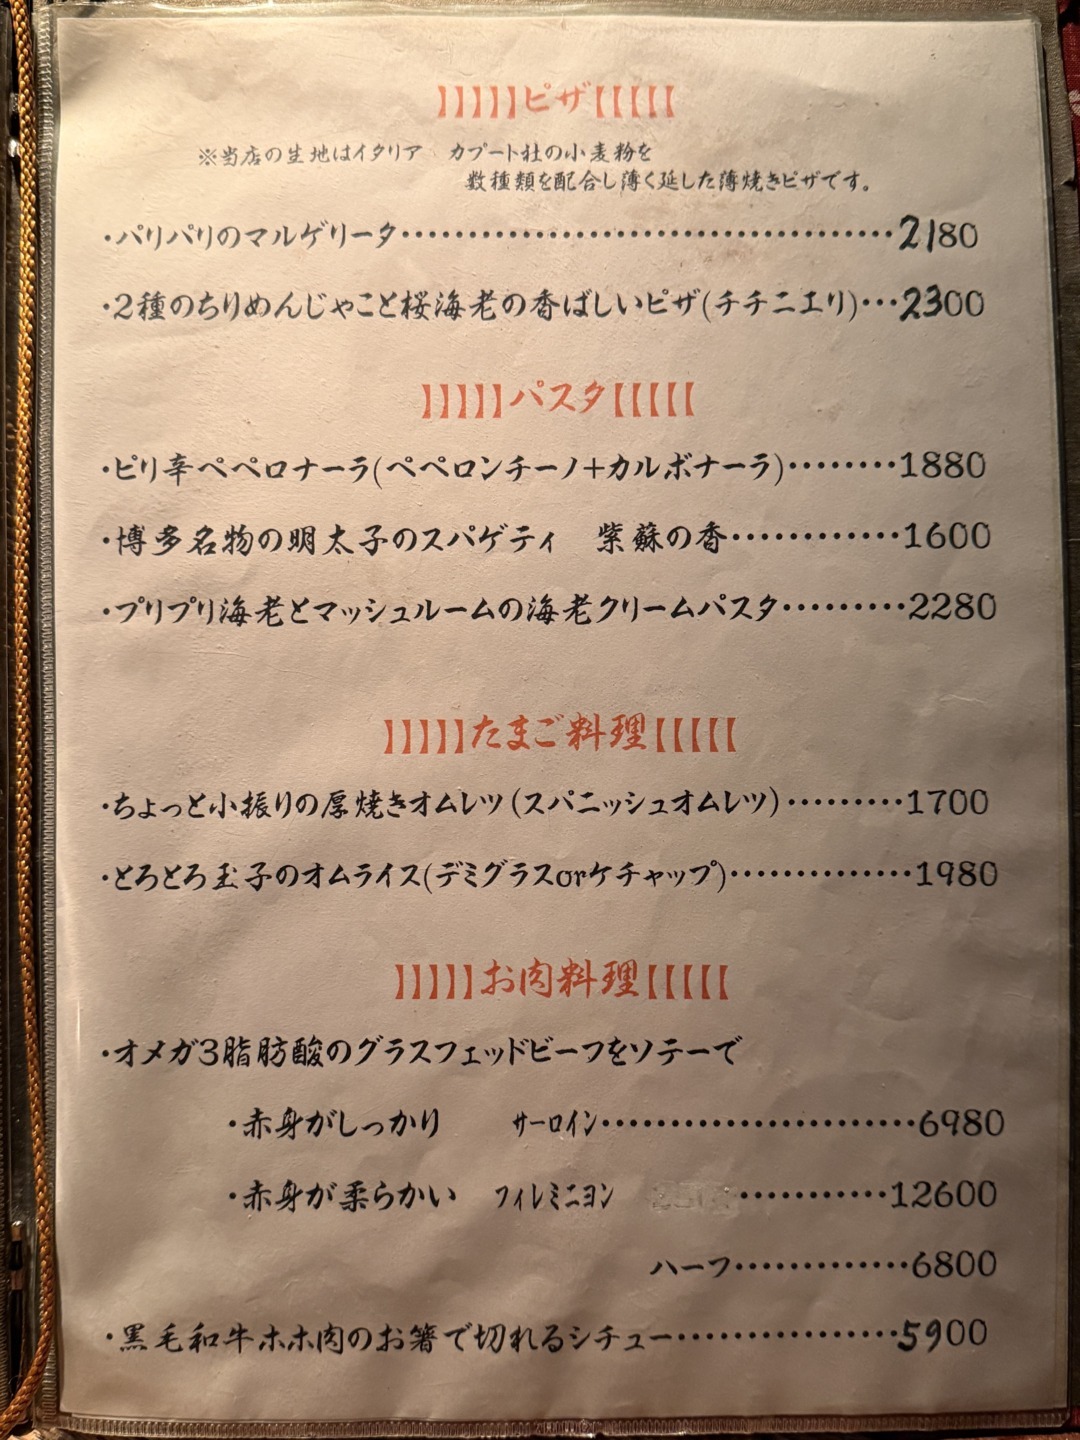 】】】】】ピザ【【【【【
※当店の生地はイタリア　カプート社の小麦粉を
数種類を配合し薄く延した薄焼きピザです。
・パリパリのマルゲリータ・・・・・・・・・・・・・・・・・・・・・・・・・・・・・・・・・・・・・2180
・2種のちりめんじゃこと桜海老の香ばしいピザ(チチニエリ)・・・2300
】】】】】パスタ【【【【【
・ピリ辛ペペロナーラ(ペペロンチーノ+カルボナーラ)・・・・・・・・1880
・博多名物の明太子のスパゲティ　紫蘇の香・・・・・・・・・・・・・1600
・プリプリ海老とマッシュルームの海老クリームパスタ・・・・・・・・・2280
】】】】】たまご料理【【【【【
・ちょっと小振りの厚焼きオムレツ(スパニッシュオムレツ)・・・・・・・・・1700
・とろとろ玉子のオムライス(デミグラスorケチャップ)・・・・・・・・・・・・・・1980
】】】】】お肉料理【【【【【
・オメガ3脂肪酸のグラスフェッドビーフをソテーで
・赤身がしっかり　サーロイン・・・・・・・・・・・・・・・・・・・・・・・・6980
・赤身が柔らかい　フィレミニヨン　・・・・・・・・・・・12600
ハーフ・・・・・・・・・・・・・6800
・黒毛和牛ホホ肉のお箸で切れるシチュー・・・・・・・・・・・・・・・・・5900